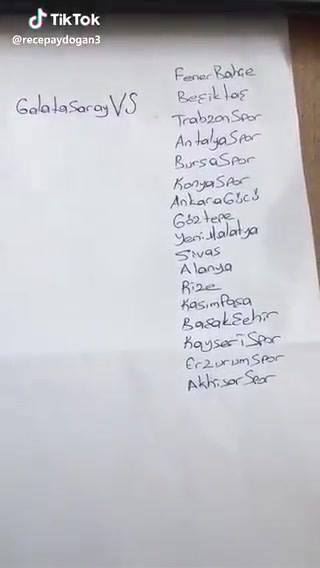 TikTok
@recepaydogan3
GalataSaray VS
FenerBahçe
Beşiktaş
TrabzonSpor
AntalyaSpor
BursaSpor
KonyaSpor
AnkaraGücü
Göztepe
Yeni Malatya
Sivas
Alanya
Rize
KasımPaşa
BaşakŞehir
KayseriSpor
ErzurumSpor
AkhisarSpor